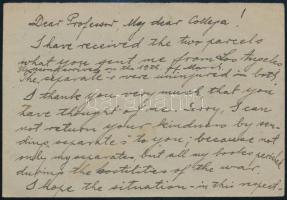 Dear Professor, My dear Collega!
I have received the two parcels
what you sent me from Los Angeles
on the 12th of March.
The separate's were uninjured in both.
I thank you very much that you
have thought of me. Sorry, I can
not return your kindness by sen-
ding separate's to you; because not
only my separates, but all my books perished
during the hostilities of the war.
I hope the situation in this respect